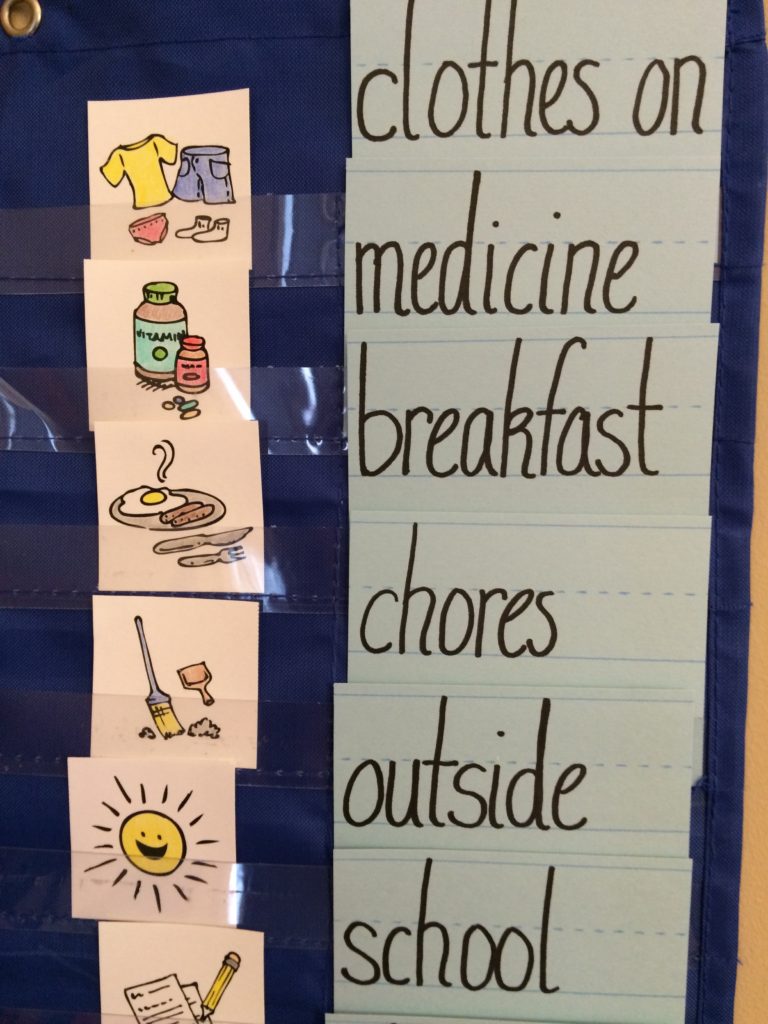 clothes on
medicine
VITAMIN
breakfast
chores
outside
school